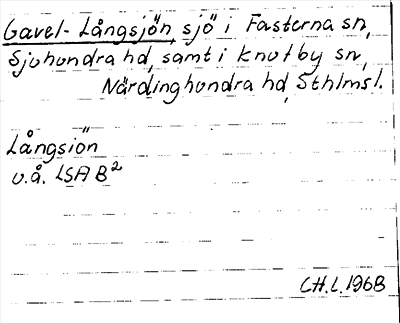 Gavel-Långsjön, sjö i Fasterna sn,
Sjuhundra hd, samt i Knutby sn,
Närdinghundra hd, Sthlmsl.
Långsiön
u.å. LSA B2
CH.L.1968